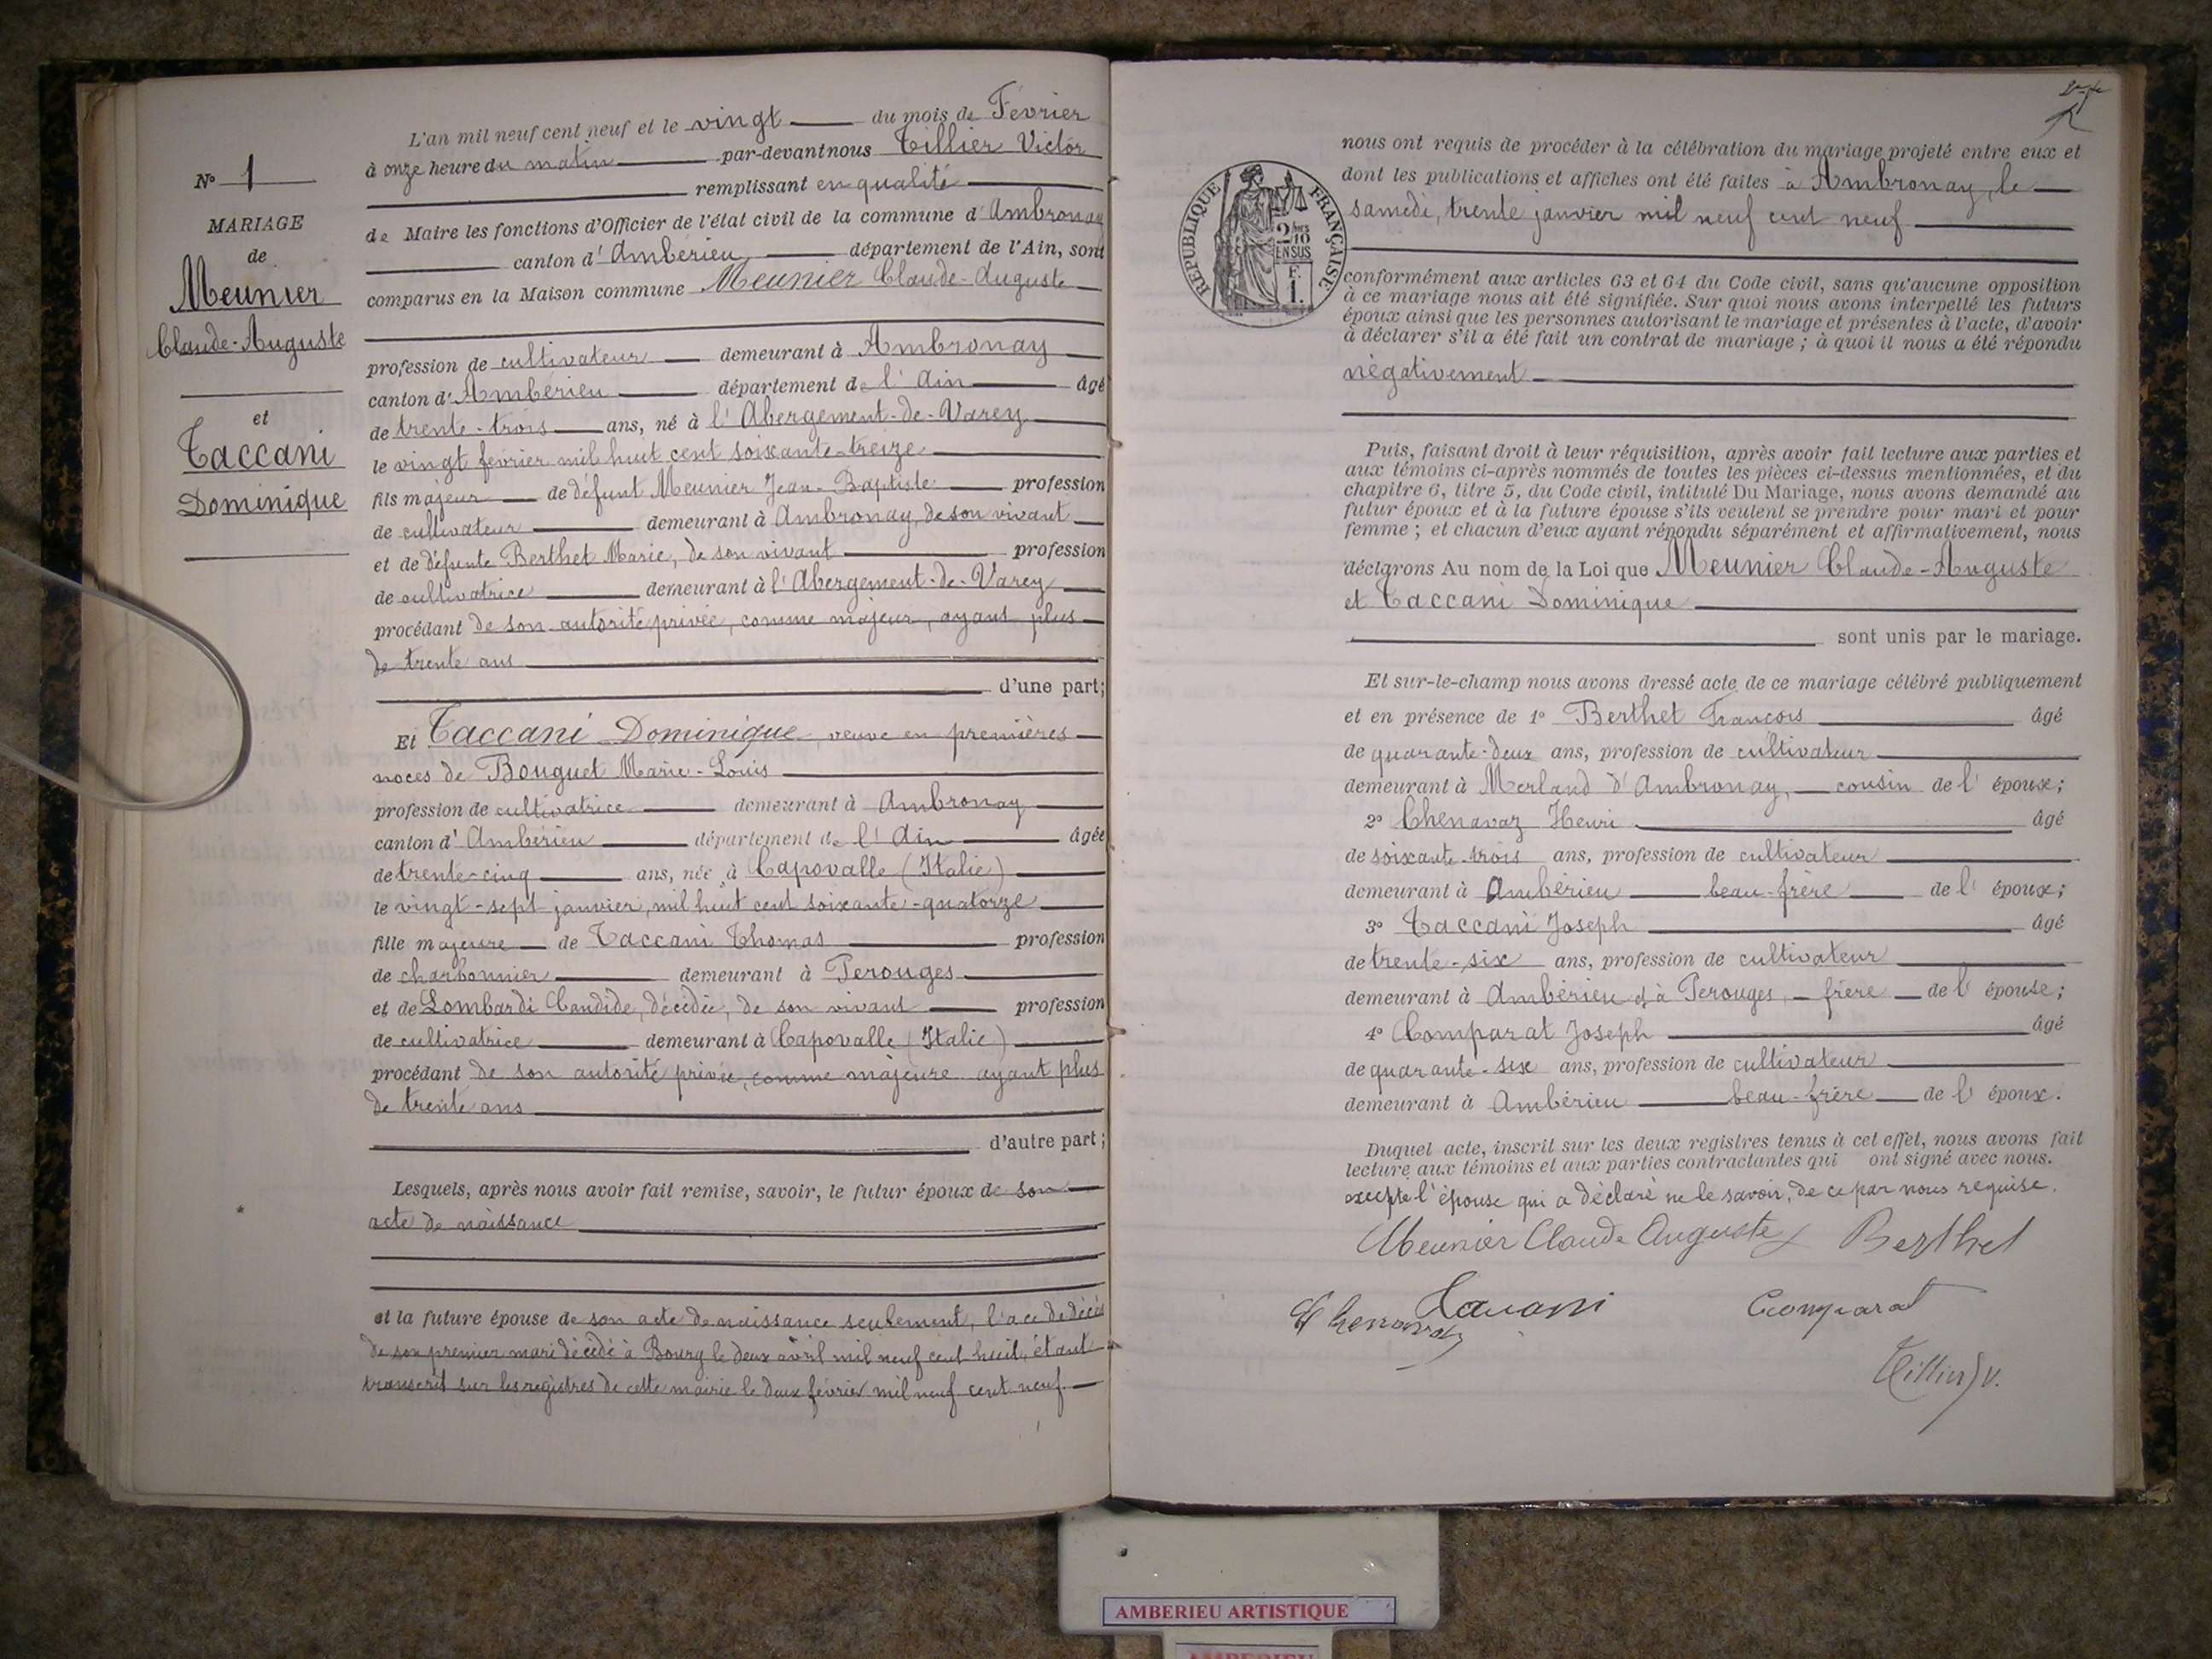 N° 1
MARIAGE
de
Meunier
Claude-Auguste
et
Taccani
Dominique
L'an mil neuf cent neuf et le vingt du mois de Février
à onze heure du matin par-devant nous Tillier Victor
remplissant en qualité
de Maire les fonctions d'Officier de l'état civil de la commune d'Ambronay
canton d'Ambérieu département de l'Ain, sont
comparus en la Maison commune Meunier Claude-Auguste
profession de cultivateur demeurant à Ambronay
canton d'Ambérieu département de l'Ain âgé
de trente-trois ans, né à l'Abergement-de-Varey
le vingt février mil huit cent soixante-treize
fils majeur de défunt Meunier Jean-Baptiste profession
de cultivateur demeurant à Ambronay, de son vivant
et de défunte Berthet Marie, de son vivant profession
de cultivatrice demeurant à l'Abergement-de-Varey
procédant de son autorité privée, comme majeur, ayant plus
de trente ans
d'une part;
Et Taccani Dominique, veuve en premières
noces de Bouguet Marie-Louis
profession de cultivatrice demeurant à Ambronay
canton d'Ambérieu département de l'Ain âgée
de trente-cinq ans, née à Capovalle (Italie)
le vingt-sept janvier, mil huit cent soixante-quatorze
fille majeure de Taccani Thomas profession
de charbonnier demeurant à Perouges
et de Lombardi Candide, décédée, de son vivant profession
de cultivatrice demeurant à Capovalle (Italie)
procédant de son autorité privée, comme majeure ayant plus
de trente ans
d'autre part;
Lesquels, après nous avoir fait remise, savoir, le futur époux de son
acte de naissance
et la future épouse de son acte de naissance seulement, l'ace de décès
de son premier mari décédé à Bourg le deux avril mil neuf cent huit, étant
transcrit sur les registres de cette mairie le deux février mil neuf cent neuf
RÉPUBLIQUE FRANÇAISE
2/10
EN SUS
F.
1.
nous ont requis de procéder à la célébration du mariage projeté entre eux et
dont les publications et affiches ont été faites à Ambronay, le
samedi, trente janvier mil neuf cent neuf
conformément aux articles 63 et 64 du Code civil, sans qu'aucune opposition
à ce mariage nous ait été signifiée. Sur quoi nous avons interpellé les futurs
époux ainsi que les personnes autorisant le mariage et présentes à l'acte, d'avoir
à déclarer s'il a été fait un contrat de mariage ; à quoi il nous a été répondu
négativement
Puis, faisant droit à leur réquisition, après avoir fait lecture aux parties et
aux témoins ci-après nommés de toutes les pièces ci-dessus mentionnées, et du
chapitre 6, titre 5, du Code civil, intitulé Du Mariage, nous avons demandé au
futur époux et à la future épouse s'ils veulent se prendre pour mari et pour
femme ; et chacun d'eux ayant répondu séparément et affirmativement, nous
déclarons Au nom de la Loi que Meunier Claude-Auguste
et Taccani Dominique
sont unis par le mariage.
Et sur-le-champ nous avons dressé acte de ce mariage célébré publiquement
et en présence de 1° Berthet François âgé
de quarante-deux ans, profession de cultivateur
demeurant à Merland d'Ambronay, cousin de l'époux;
2° Chenavaz Henri âgé
de soixante-trois ans, profession de cultivateur
demeurant à Ambérieu beau-frère de l'époux;
3° Taccani Joseph âgé
de trente-six ans, profession de cultivateur
demeurant à Ambérieu d'à Perouges, frère de l'épouse;
4° Comparat Joseph âgé
de quarante-six ans, profession de cultivateur
demeurant à Ambérieu beau-frère de l'époux.
Duquel acte, inscrit sur les deux registres tenus à cet effet, nous avons fait
lecture aux témoins et aux parties contractantes qui ont signé avec nous.
excepté l'épouse qui a déclaré ne le savoir, de ce par nous requise.
Meunier Claude Auguste Berthet
Chenavaz Taccani Comparat
Tillier V.
AMBERIEU ARTISTIQUE
AMBERIEU